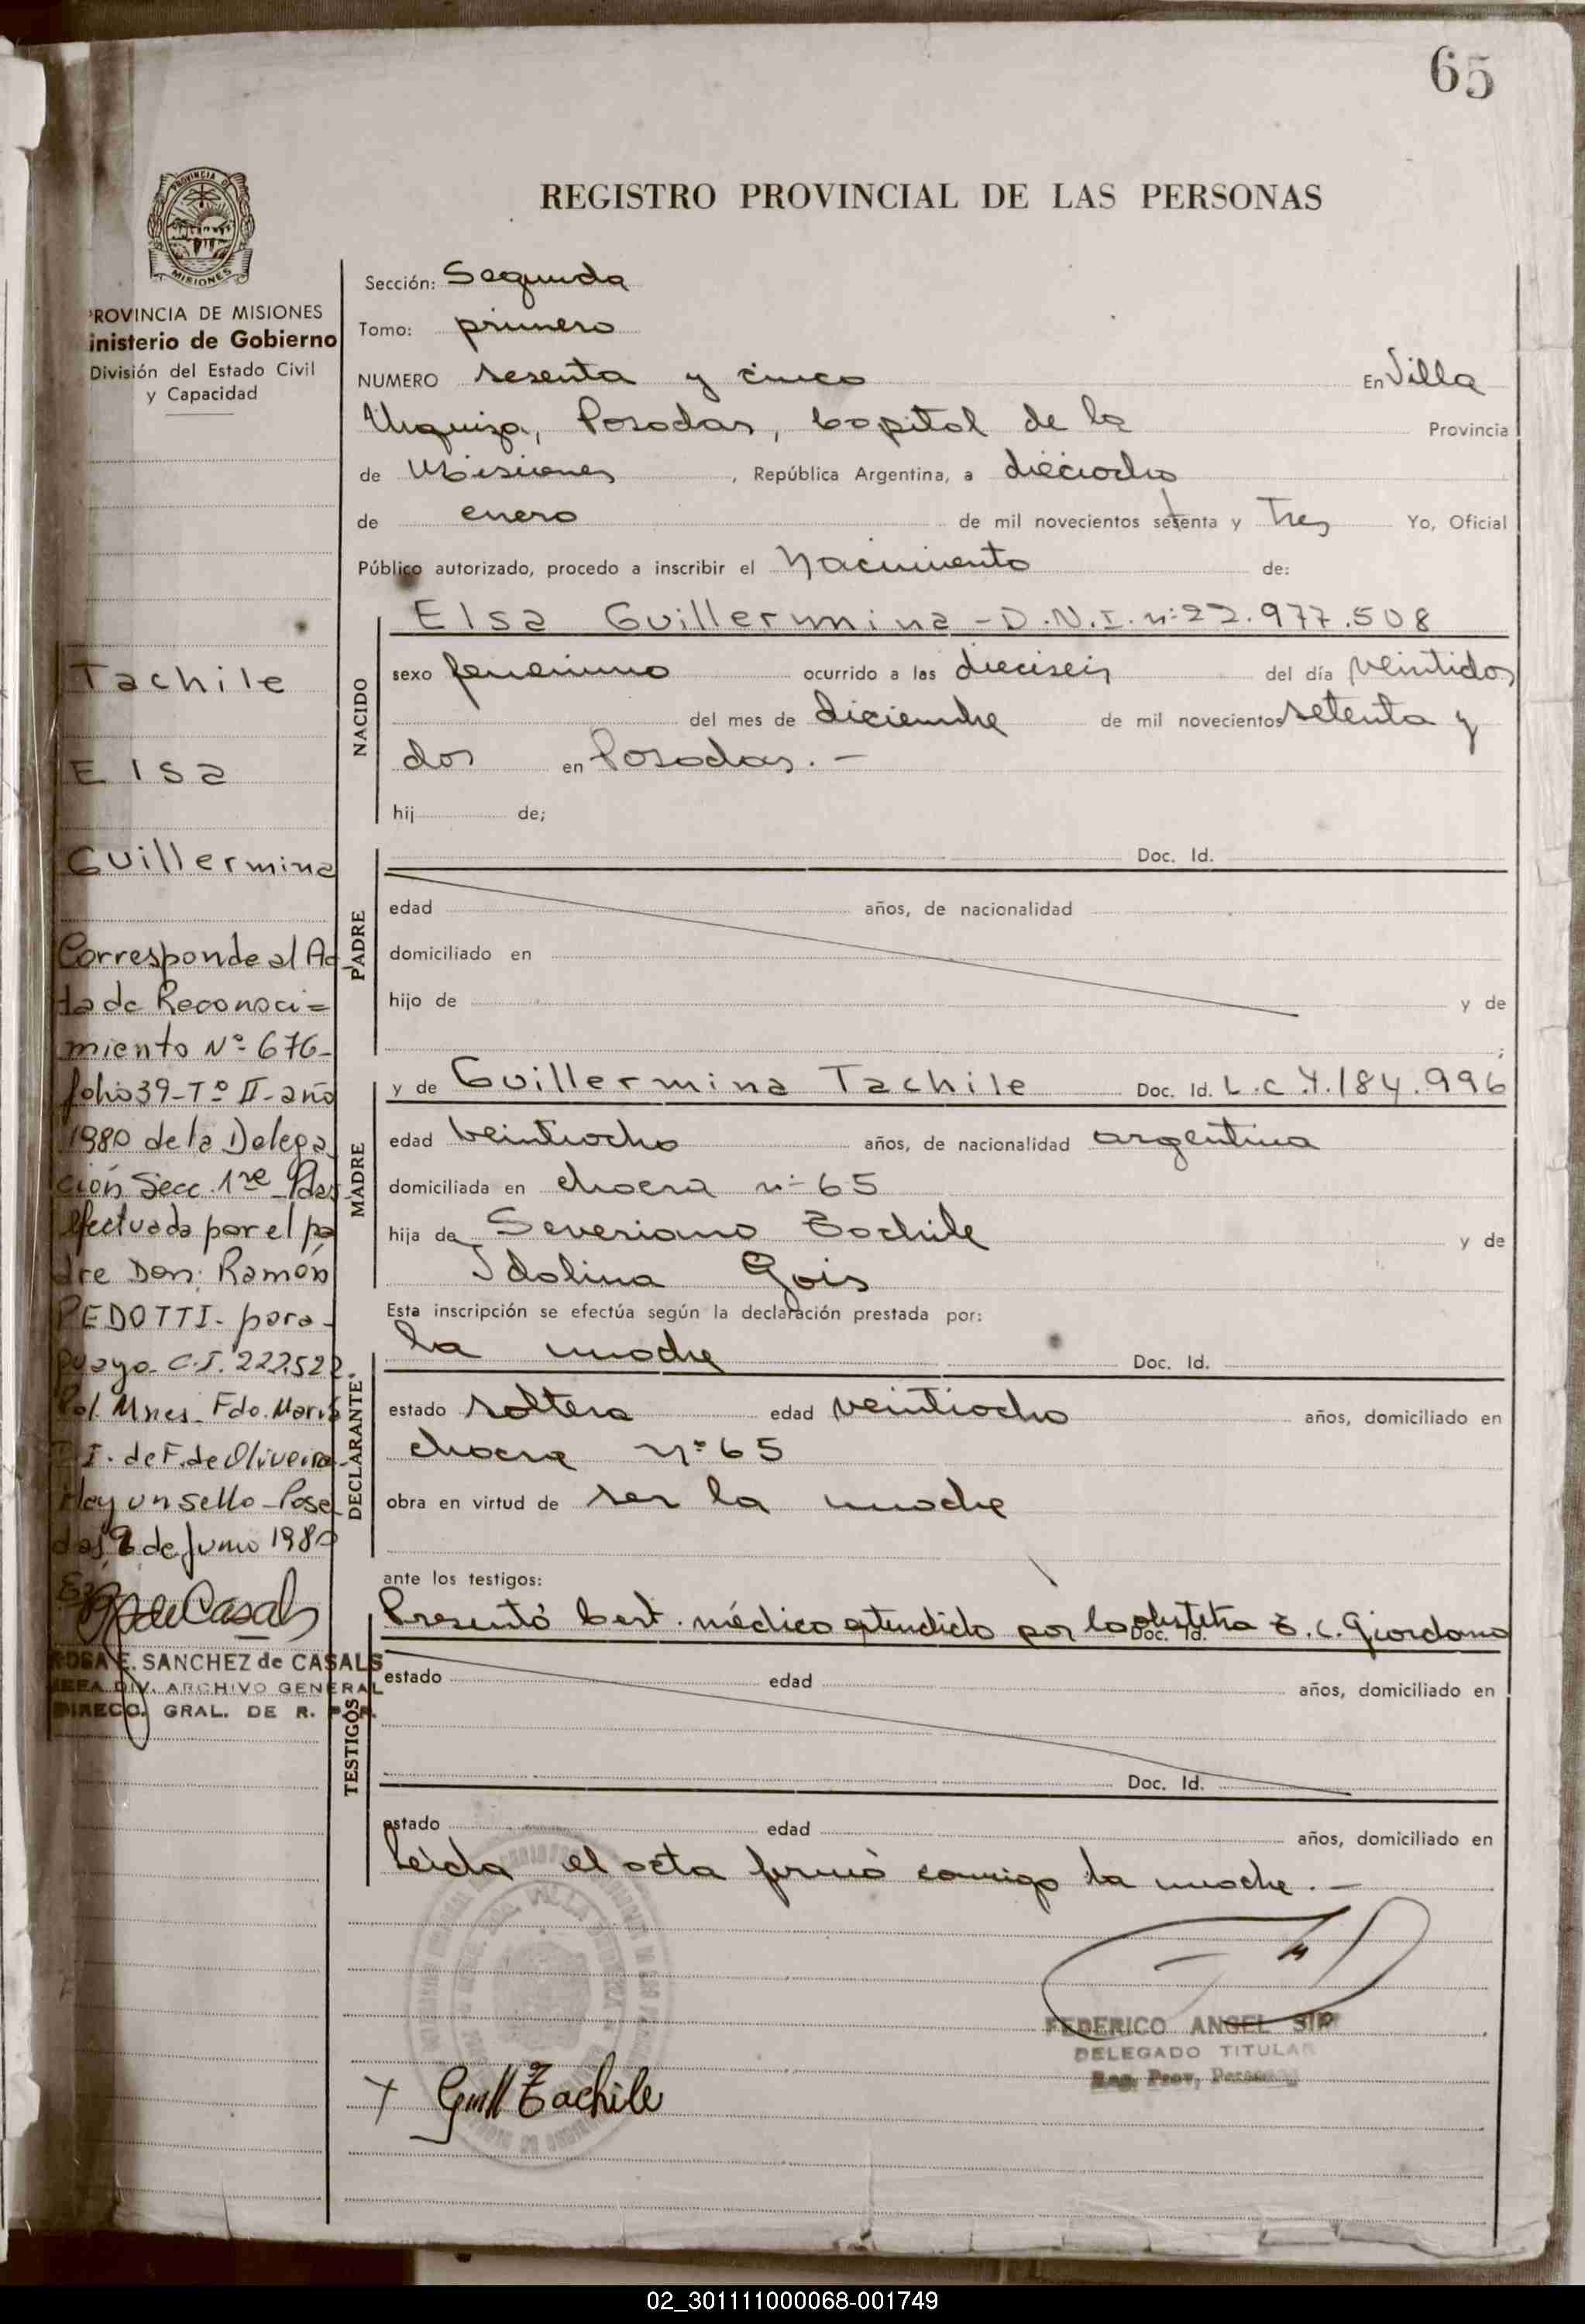 65
REGISTRO PROVINCIAL DE LAS PERSONAS
PROVINCIA DE
MISIONES
PROVINCIA DE MISIONES
inisterio de Gobierno
División del Estado Civil
y Capacidad
Tachile
Elsa
Guillermina
Corresponde al Ac
ta de Reconoci=
miento Nº 676-
folio 39-Tº II-año
1980 de la Delega
ción Secc. 1re Pdas
efectuada por el pa
dre Don: Ramón
PEDOTTI- para-
guayo- C.I. 222.522
Pol. Mnes- Fdo. María
I. de F. de Oliveira-
Hay un sello-Posa
das, 9 de Junio 1980
ROSA E. SANCHEZ de CASALS
JEFA DIV. ARCHIVO GENERAL
DIRECC. GRAL. DE R. P. P.
Sección: Segunda
Tomo: primero
NUMERO sesenta y cinco En Villa
Urquiza, Posadas, Capital de la Provincia
de Misiones, República Argentina, a dieciocho
de enero de mil novecientos setenta y Tres Yo, Oficial
Público autorizado, procedo a inscribir el Nacimiento de:
NACIDO
Elsa Guillermina - D.N.I. nº 22.977.508
sexo femenino ocurrido a las dieciseis del día veintidos
del mes de diciembre de mil novecientos setenta y
dos en Posadas. -
hij de;
PADRE
Doc. Id.
edad años, de nacionalidad
domiciliado en
hijo de y de
;
MADRE
y de Guillermina Tachile Doc. Id. L.C. 4.184.996
edad veintiocho años, de nacionalidad argentina
domiciliada en chacra nº 65
hija de Severiano Tachile y de
Idolina Gois
Esta inscripción se efectúa según la declaración prestada por:
DECLARANTE
la madre Doc. Id.
estado soltera edad veintiocho años, domiciliado en
chacra nº 65
obra en virtud de ser la madre
ante los testigos:
TESTIGOS
Presentó Cert. médico atendido por la obstetra E. C. Giordano Doc. Id.
estado edad años, domiciliado en
Doc. Id.
estado edad años, domiciliado en
Leída el acta firmó conmigo la madre. -
FEDERICO ANGEL
DELEGADO TITULAR
Reg. Prov. Personas
Guill Tachile
02_301111000068-001749